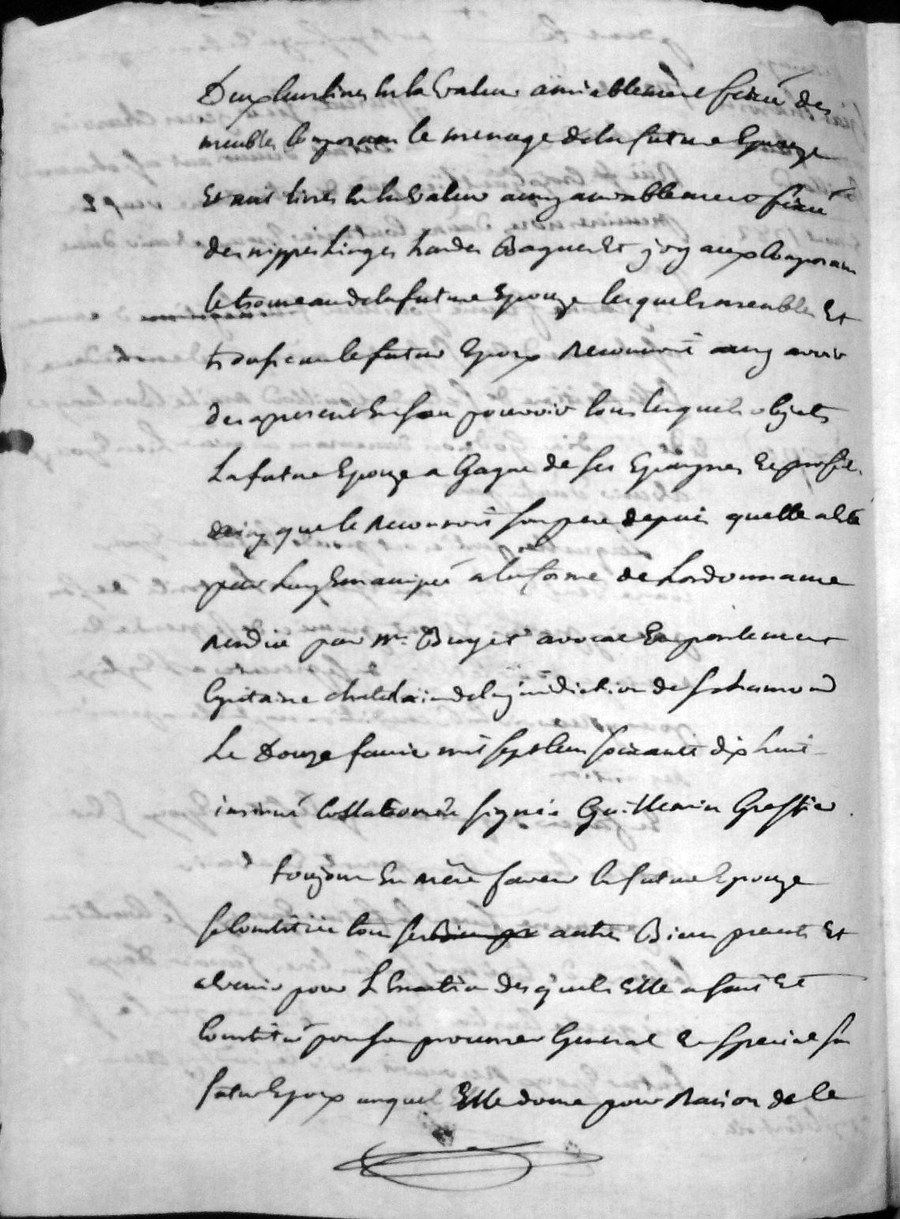 Deux cent livres en la valeur amiablement fixée des
meubles composant le menage de la future Epouze
Et mil livres en la valeur aussy amiablement fixée
des nippes Linges hardes Bagues Et joyaux composant
le trousseau de la future Epouze lesquels meubles Et
trousseau le futur Epoux Reconnoit aussy avoir
des apresent En son pouvoir tous lesquels objets
La future Epouze a Gagné de ses Epargnes Et profits
ainsy que le Reconnoit son pere depuis quelle a Eté
par Luy Emancipée a la forme de Lordonnance
Rendüe par Mr. Buyet avocat En parlement
Capitaine chatelain de la jurisdiction de St chamond
Le Douze mil sept cent soixante dix huit
insinué Collationnée signée Guillemin Greffier.
toujour En meme faveur la future Epouze
se constitüe tous ses autres Biens presents Et
avenir pour L'Exaction desquels Elle a fait Et
Constitué pour son procureur General Et special son
futur Epoux auquel Elle donne pour Raison de ce